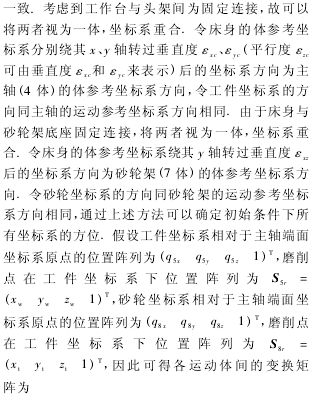 一致．考虑到工作台与头架间为固定连接,故可以
将两者视为一体,坐标系重合．令床身的体参考坐
标系分别绕其x、y轴转过垂直度εxc、εyc(平行度εzc
可由垂直度εxc和εyc来表示)后的坐标系方向为主
轴(4体)的体参考坐标系方向,令工件坐标系的方
向同主轴的运动参考坐标系方向相同．由于床身与
砂轮架底座固定连接,将两者视为一体,坐标系重
合．令床身的体参考坐标系绕其y轴转过垂直度εxz
后的坐标系方向为砂轮架(7体)的体参考坐标系方
向．令砂轮坐标系的方向同砂轮架的运动参考坐标
系方向相同,通过上述方法可以确定初始条件下所
有坐标系的方位．假设工件坐标系相对于主轴端面
坐标系原点的位置阵列为(q5x q5y q5z 1)T,磨削
点在工件坐标系下位置阵列为 S5r =
(xw yw zw 1)T,砂轮坐标系相对于主轴端面坐
标系原点的位置阵列为(q8x q8y q8z 1)T,磨削点
在工件坐标系下位置阵列为 S8r =
(xt yt zt 1)T,因此可得各运动体间的变换矩
阵为